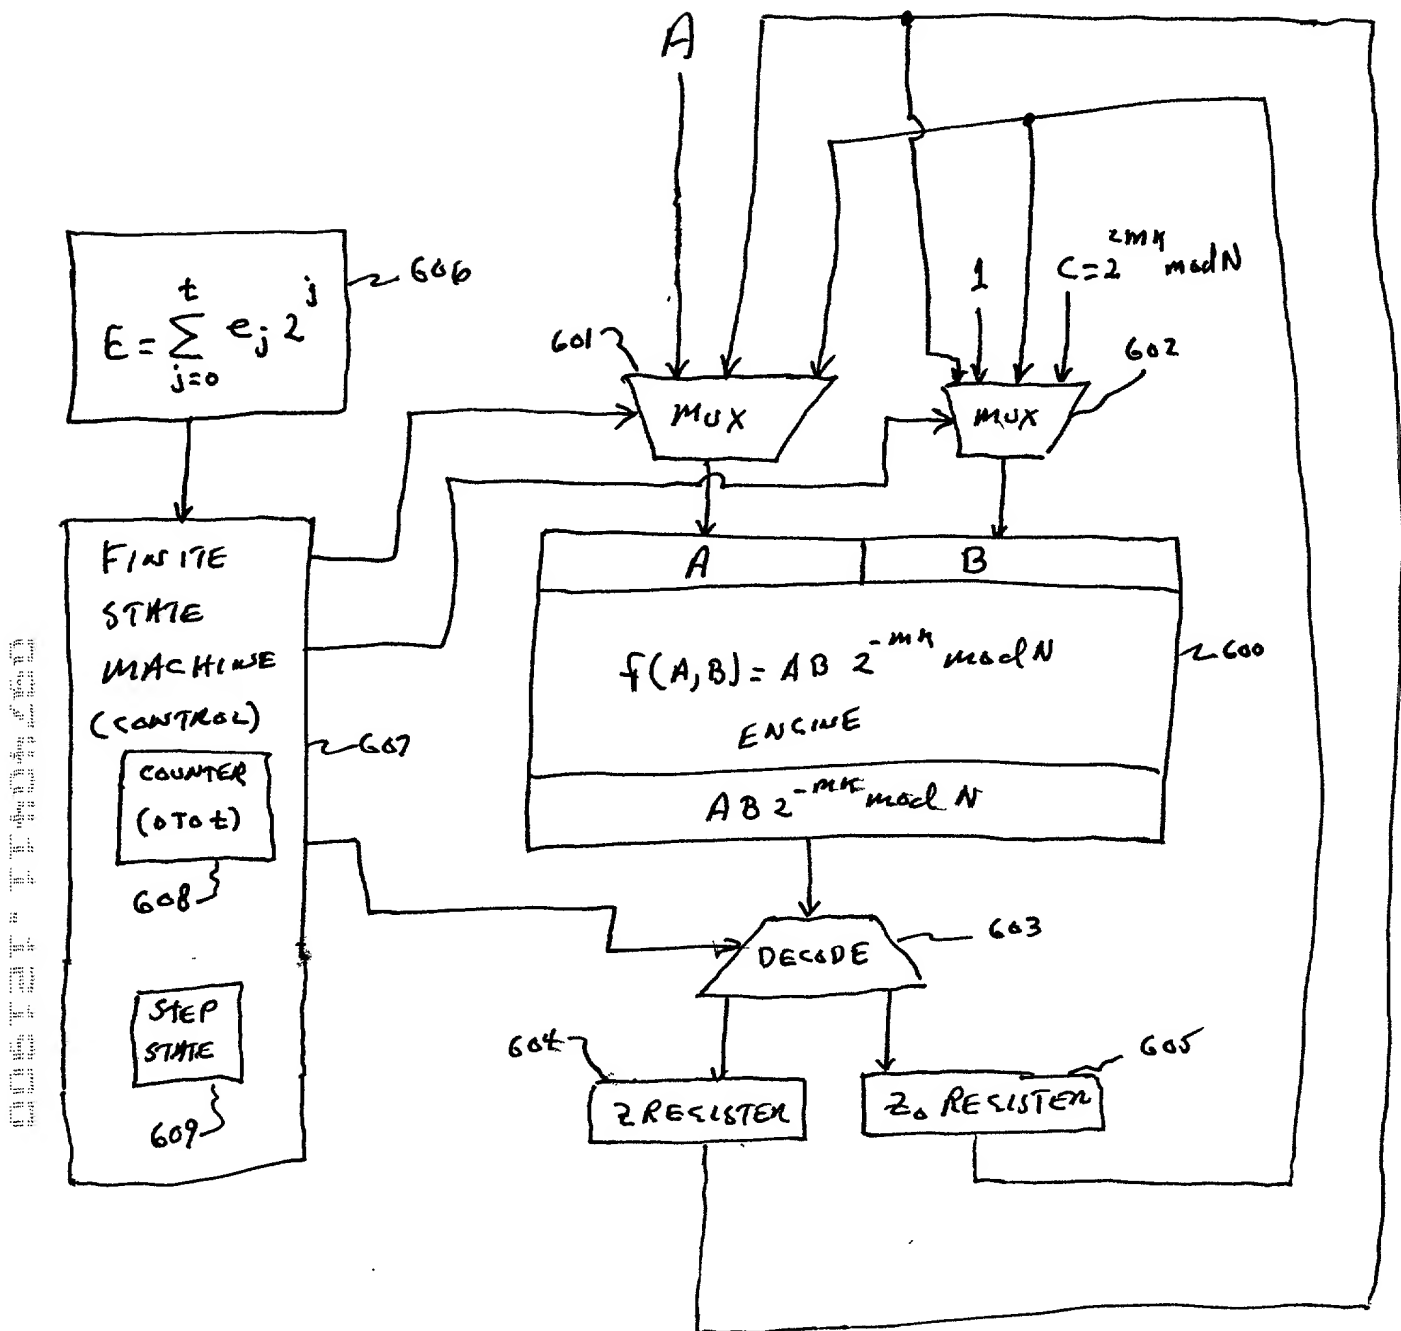 A
E = \sum_{j=0}^{t} e_j 2^j
606
601
1
C = 2^{2mk} mod N
602
MUX
MUX
FINITE
STATE
MACHINE
(CONTROL)
607
COUNTER
(0 TO t)
608
STEP
STATE
609
A
B
f(A,B) = AB 2^{-mk} mod N
ENGINE
600
AB 2^{-mk} mod N
DECODE
603
604
Z REGISTER
605
Z₀ REGISTER